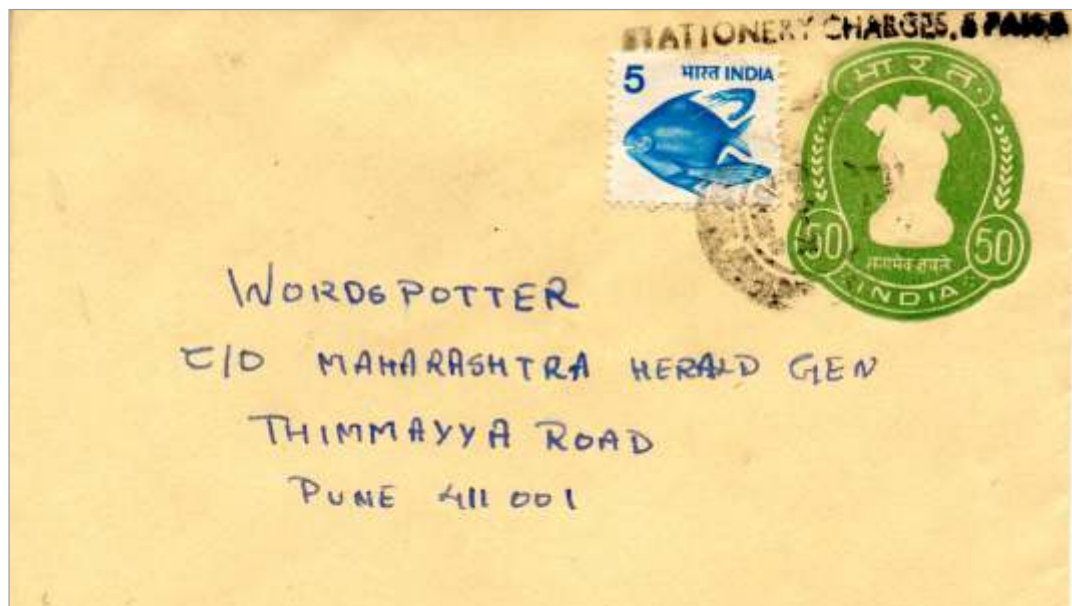 STATIONERY CHARGES, 5 PAISA
5 भारत INDIA
भारत
50 50
सत्यमेव जयते
INDIA
WORDSPOTTER
C/O MAHARASHTRA HERALD GEN
THIMMAYYA ROAD
PUNE 411 001